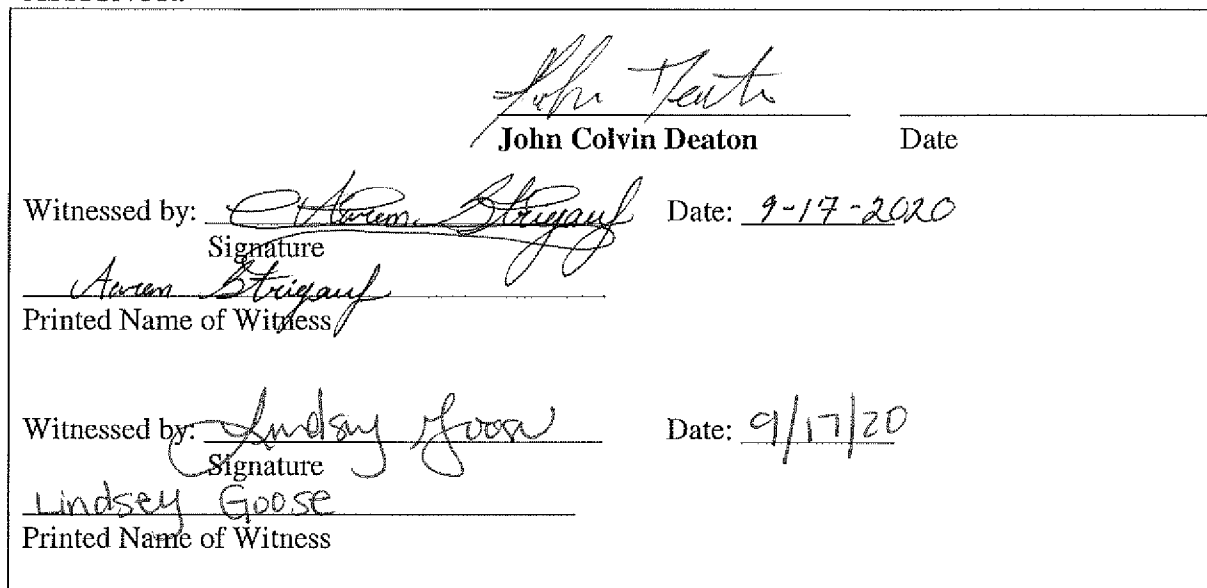 John Deaton
John Colvin Deaton Date
Witnessed by: Karen Strigauf Date: 9-17-2020
Signature
Karen Strigauf
Printed Name of Witness
Witnessed by: Lindsey Goose Date: 9/17/20
Signature
Lindsey Goose
Printed Name of Witness